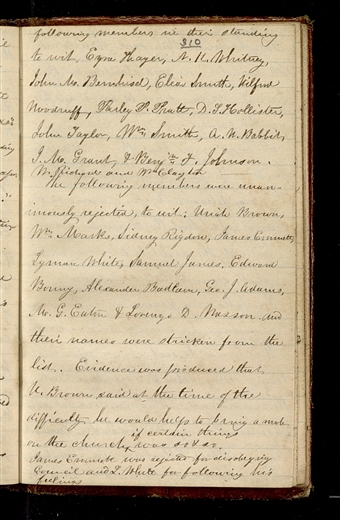 following members in their standing
310
to wit, Ezra Thayer, N. K. Whitney,
John M. Bernhisel, Elias Smith, Wilford
Woodruff, Parley P. Pratt, D. S. Hollister,
John Taylor, Wm Smith, A. W. Babbit,
J. M. Grant, & Benj. F. Johnson.
W. Richards and Wm Clayton
The following members were unan-
imously rejected, to wit: Uriah Brown,
Wm Marks, Sidney Rigdon, James Emmett,
Lyman White, Samuel James, Edward
Bonny, Alexander Badlam, Geo. J. Adams,
M. G. Eaton & Lorenzo D. Wasson and
their names were stricken from the
list. Evidence was produced that
U. Brown said at the time of the
difficulty he would help to bring a mob
if certain things
on the church, was so & so.
James Emmett was rejected for disobeying
Council and L. White for following his
feelings